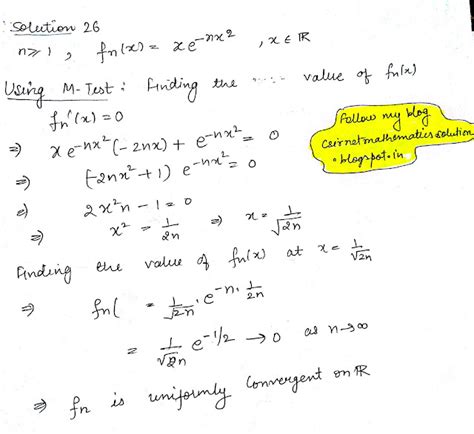 Solution 26
n ≥ 1 , fn(x) = xe^{-nx^2} , x ∈ ℝ
Using M-Test : Finding the value of fn(x)
fn'(x) = 0
⇒ x e^{-nx^2}(-2nx) + e^{-nx^2} = 0
⇒ (-2nx^2+1) e^{-nx^2} = 0
⇒ 2x^2n - 1 = 0
⇒ x^2 = 1/2n ⇒ x = 1/√2n
Follow my blog
csirnetmathematicssolution
.blogspot.in
Finding the value of fn(x) at x = 1/√2n
⇒ fn( = 1/√2n . e^{-n. 1/2n}
= 1/√2n e^{-1/2} → 0 as n→∞
⇒ fn is uniformly convergent on ℝ